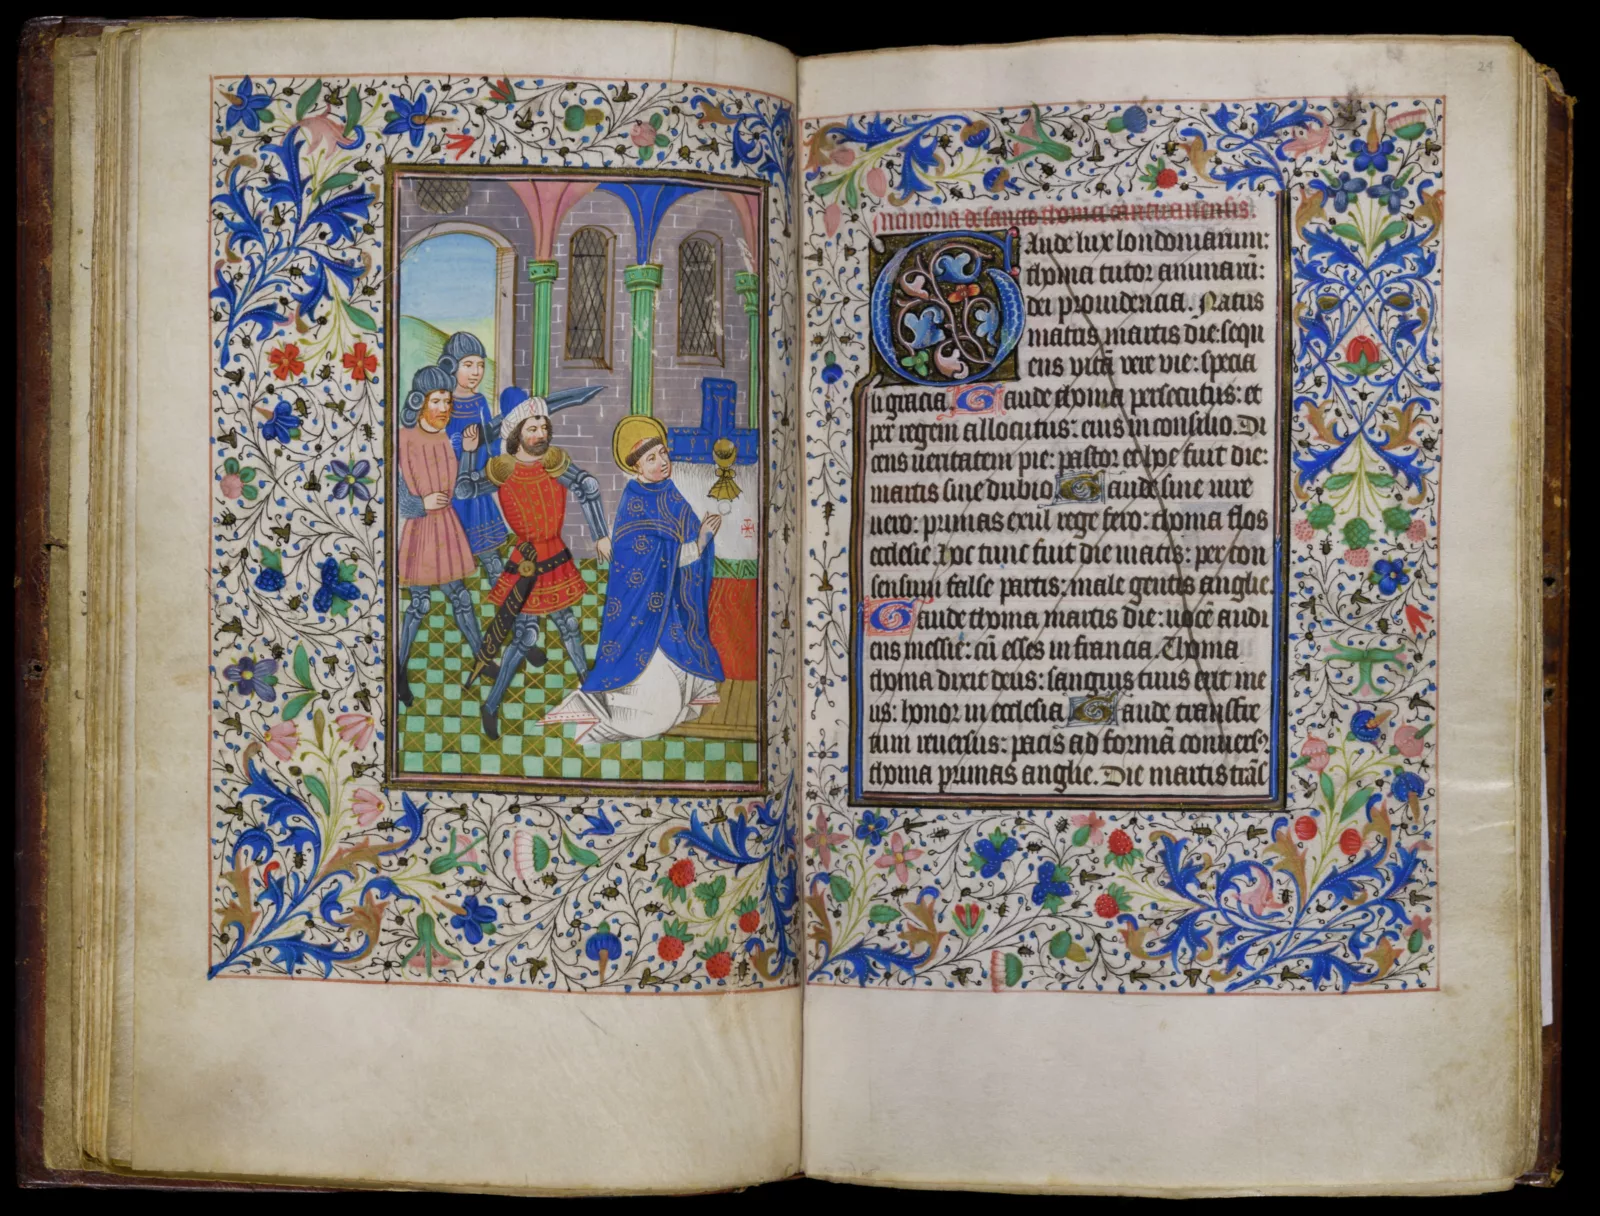 24
Memoria de sancto thoma cantuariensis.
Gaude lux londoniarum:
thoma tutor animarū:
dei prouidencia. Natus
matris martis die: sequ
ens vitā vere vie: specia
li gracia. Gaude thoma persecutus: et
per regem allocutus: eius in consilio. Di
cens ueritatem pie: pastor et hoc fuit die:
martis sine dubio Gaude sine iure
uero: primas exul rege fero: thoma flos
ecclesie. Hoc tunc fuit die matis: per con
sensum false partis: male gentis anglie.
Gaude thoma martis die: uocē audi
ens messie: cū esses in francia. Thoma
thoma dixit deus: sanguis tuus erit me
us: honor in ecclesia Gaude transfre
tum reuersus: pacis ad formā conuers9
thoma primas anglie. Die martis trās